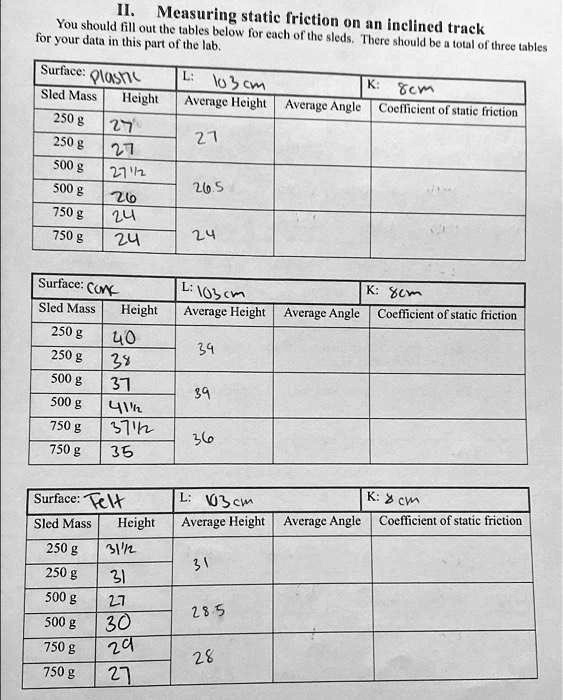 II. Measuring static friction on an inclined track
You should fill out the tables below for each of the sleds. There should be a total of three tables
for your data in this part of the lab.
Surface: Plastic L: 103 cm K: 8cm
Sled Mass Height Average Height Average Angle Coefficient of static friction
250 g 27
250 g 27 27
500 g 27 1/2
500 g 26 26.5
750 g 24
750 g 24 24
Surface: L: 103 cm K: 8cm
Sled Mass Height Average Height Average Angle Coefficient of static friction
250 g 40
250 g 38 39
500 g 37
500 g 41 1/2 39
750 g 37 1/2
750 g 35 36
Surface: Felt L: 103 cm K: 8 cm
Sled Mass Height Average Height Average Angle Coefficient of static friction
250 g 31 1/2
250 g 31 31
500 g 27
500 g 30 28.5
750 g 29
750 g 27 28